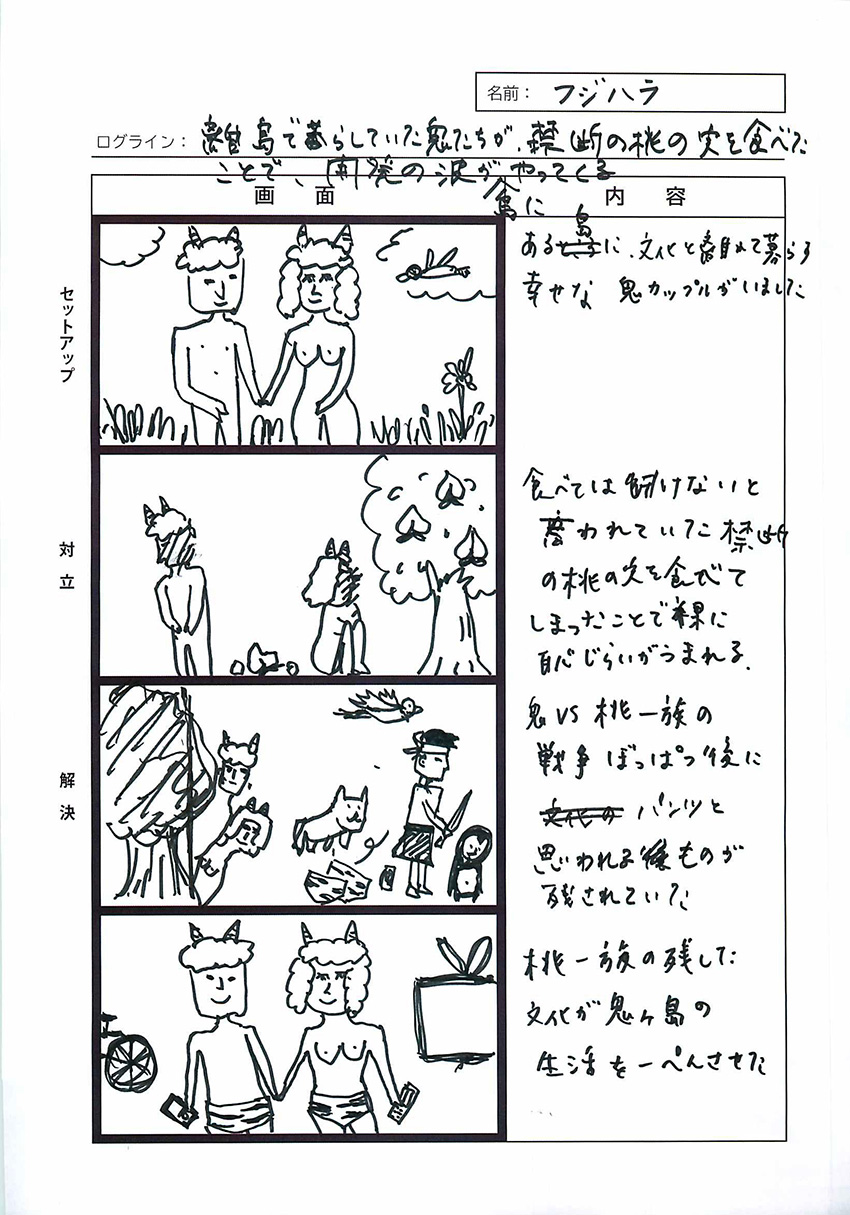 名前： フジハラ
ログライン： 離島で暮らしていた鬼たちが、禁断の桃の実を食べた
ことで、開発の波がやってくる
島に
画面 内容
セットアップ
ある島に、文化と離れて暮らす
幸せな 鬼カップルがいました
対立
食べては いけないと
言われていた 禁断
の桃の実を食べて
しまったことで裸に
恥じらいがうまれる.
解決
鬼 VS 桃一族の
戦争 ぼっぱつ後に
文化の パンツと
思われる ものが
残されていた
桃一族の残した
文化が 鬼ヶ島の
生活を一ぺんさせた